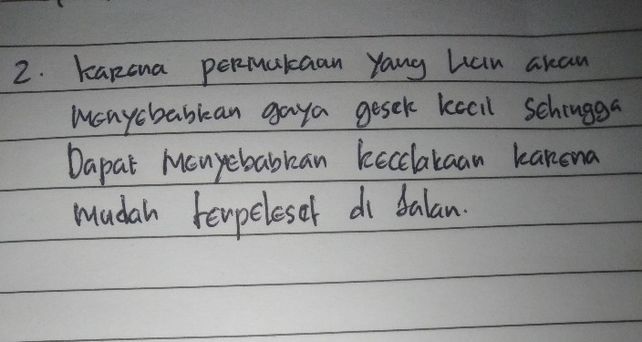 2. karena permukaan yang licin akan
menyebabkan gaya gesek kecil sehingga
Dapat menyebabkan kecelakaan karena
mudah terpeleset di Jalan.